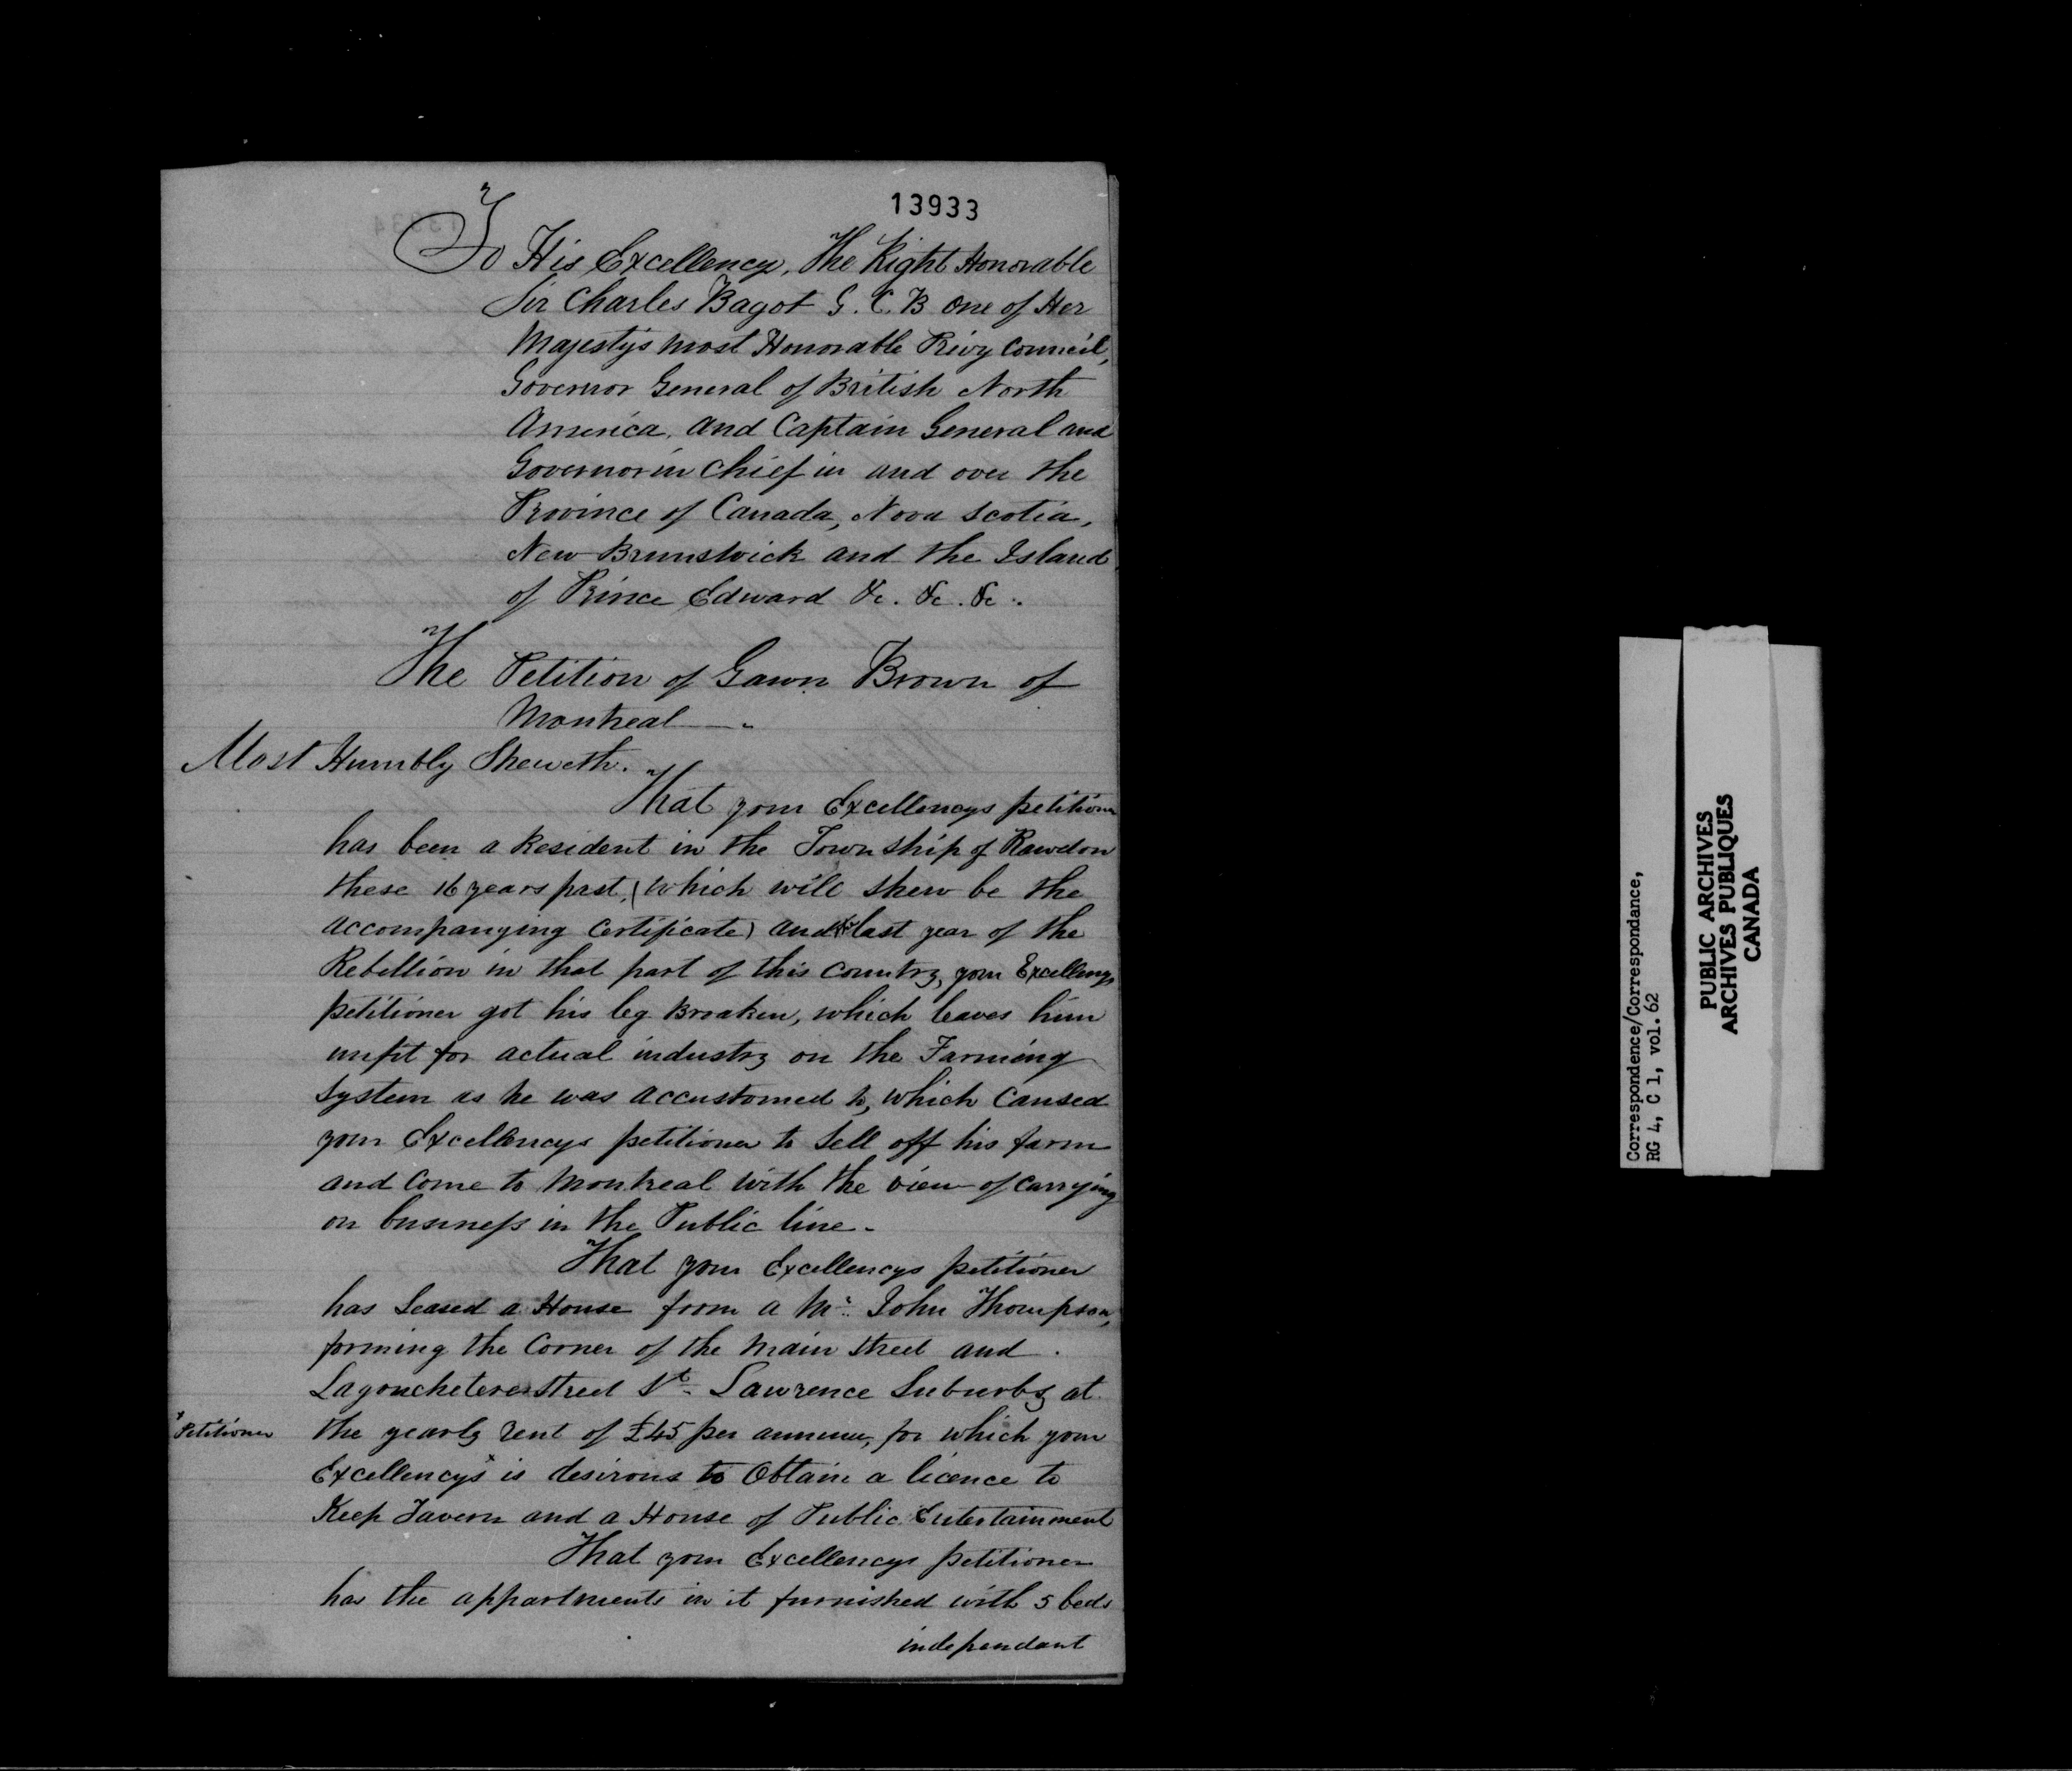 13933
To His Excellency, The Right Honorable
Sir Charles Bagot G. C. B one of Her
Majestys most Honorable Privy Council,
Governor General of British North
America, and Captain General and
Governor in Chief in and over the
Province of Canada, Nova Scotia,
New Brunswick and the Island
of Prince Edward &c. &c. &c.
The Petition of Gawn Brown of
Montreal
Most Humbly Sheweth.
That your Excellencys petitioner
has been a Resident in the Township of Rawdon
these 16 years past, (which will shew be the
accompanying Certificate) and last year of the
Rebellion in that part of this Country, your Excellencys
petitioner got his leg Broaken, which leaves him
unfit for actual industry on the Farming
System as he was accustomed to, which Caused
your Excellencys petitioner to Sell off his farm
and Come to Montreal with the view of Carrying
on business in the Public line.
That your Excellencys petitioner
has Leased a House from a Mr. John Thompson,
forming the Corner of the Main Street and
Lagouchetere Street St. Lawrence Suburbs at
the yearly rent of £45 per annum, for which your
x Petitioner
Excellencys x is desirous to Obtain a licence to
Keep Tavern and a House of Public Entertainment
That your Excellencys petitioner
has the appartments in it furnished with 5 beds
independant
Correspondence/Correspondance,
RG 4, C 1, vol. 62
PUBLIC ARCHIVES
ARCHIVES PUBLIQUES
CANADA